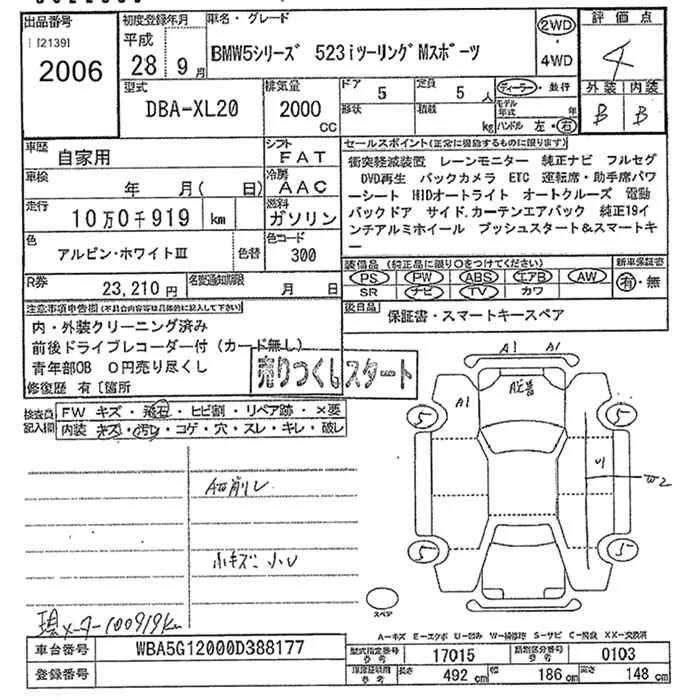 出品番号
[2139]
2006
初度登録年月
平成
28 9月
車名・グレード
BMW5シリーズ 523iツーリングMスポーツ
2WD
4WD
評価点
4
外装 内装
B B
型式
DBA-XL20
排気量
2000
CC
ドア 5
形状
定員 5 人
積載 kg
ディーラー・並行
モデル年式 年
ハンドル 左・右
車歴
自家用
車検
年 月( 日)
走行
10万0千919 km
色
アルピン・ホワイトⅢ 色替
シフト
FAT
冷房
AAC
燃料
ガソリン
色コード
300
セールスポイント(正常に機能するものに限ります)
衝突軽減装置 レーンモニター 純正ナビ フルセグ
DVD再生 バックカメラ ETC 運転席・助手席パワ
ーシート HIDオートライト オートクルーズ 電動
バックドア サイド.カーテンエアバック 純正19イ
ンチアルミホイール プッシュスタート&スマートキ
ー
装備品(純正品に限り○をつけてください)
PS PW ABS エアB AW
SR ナビ TV カワ
新車保証書
有・無
R券
23,210円
名変通知期限
月 日
後日品
保証書・スマートキースペア
注意事項申告欄(不具合内容等は具体的に記入して下さい)
内・外装クリーニング済み
前後ドライブレコーダー付(カード無し)
青年部OB 0円売り尽くし
修復歴 有〔箇所
売りつくしスタート
検査員記入欄
FW キズ・飛石・ヒビ割・リペア跡・×要
内装 キズ・汚レ・コゲ・穴・スレ・キレ・破レ
小キズ 小U
現メーター100919km
A1 A1
A1
5 5
U1
W2
5 5
スペア
A-キズ E-エクボ U-凹み W-補修跡 S-サビ C-腐食 XX-交換済
車台番号
WBA5G12000D388177
登録番号
型式指定番号 参考
17015
類別区分番号 参考
0103
車庫証明用 参考
長さ 492 cm 幅 186 cm 高さ 148 cm